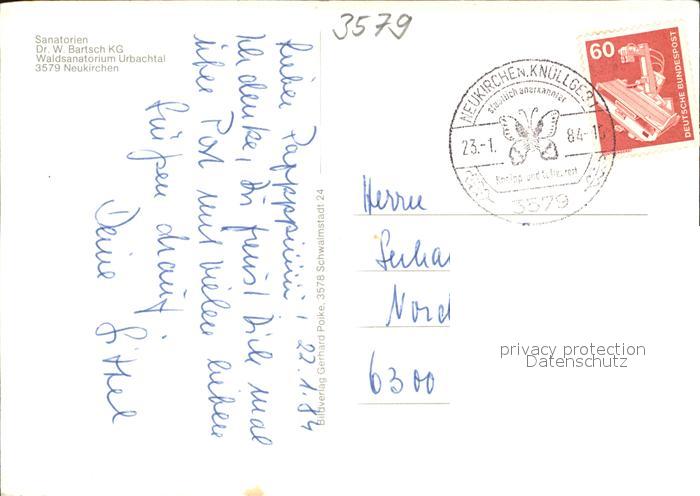 3579
Sanatorien
Dr. W. Bartsch KG
Waldsanatorium Urbachtal
3579 Neukirchen
22.1.84
Ich denke, Du freust Dich mal
über Post mit vielen lieben
Grüßen drauf
Deine
Bildverlag Gerhard Poike, 3578 Schwalmstadt 24
NEUKIRCHEN, KNÜLLGEB.
staatlich anerkannter
23.-1. 84-1
Kneipp- und Luftkurort
3579
60
DEUTSCHE BUNDESPOST
Herrn
Nord
6300
privacy protection
Datenschutz